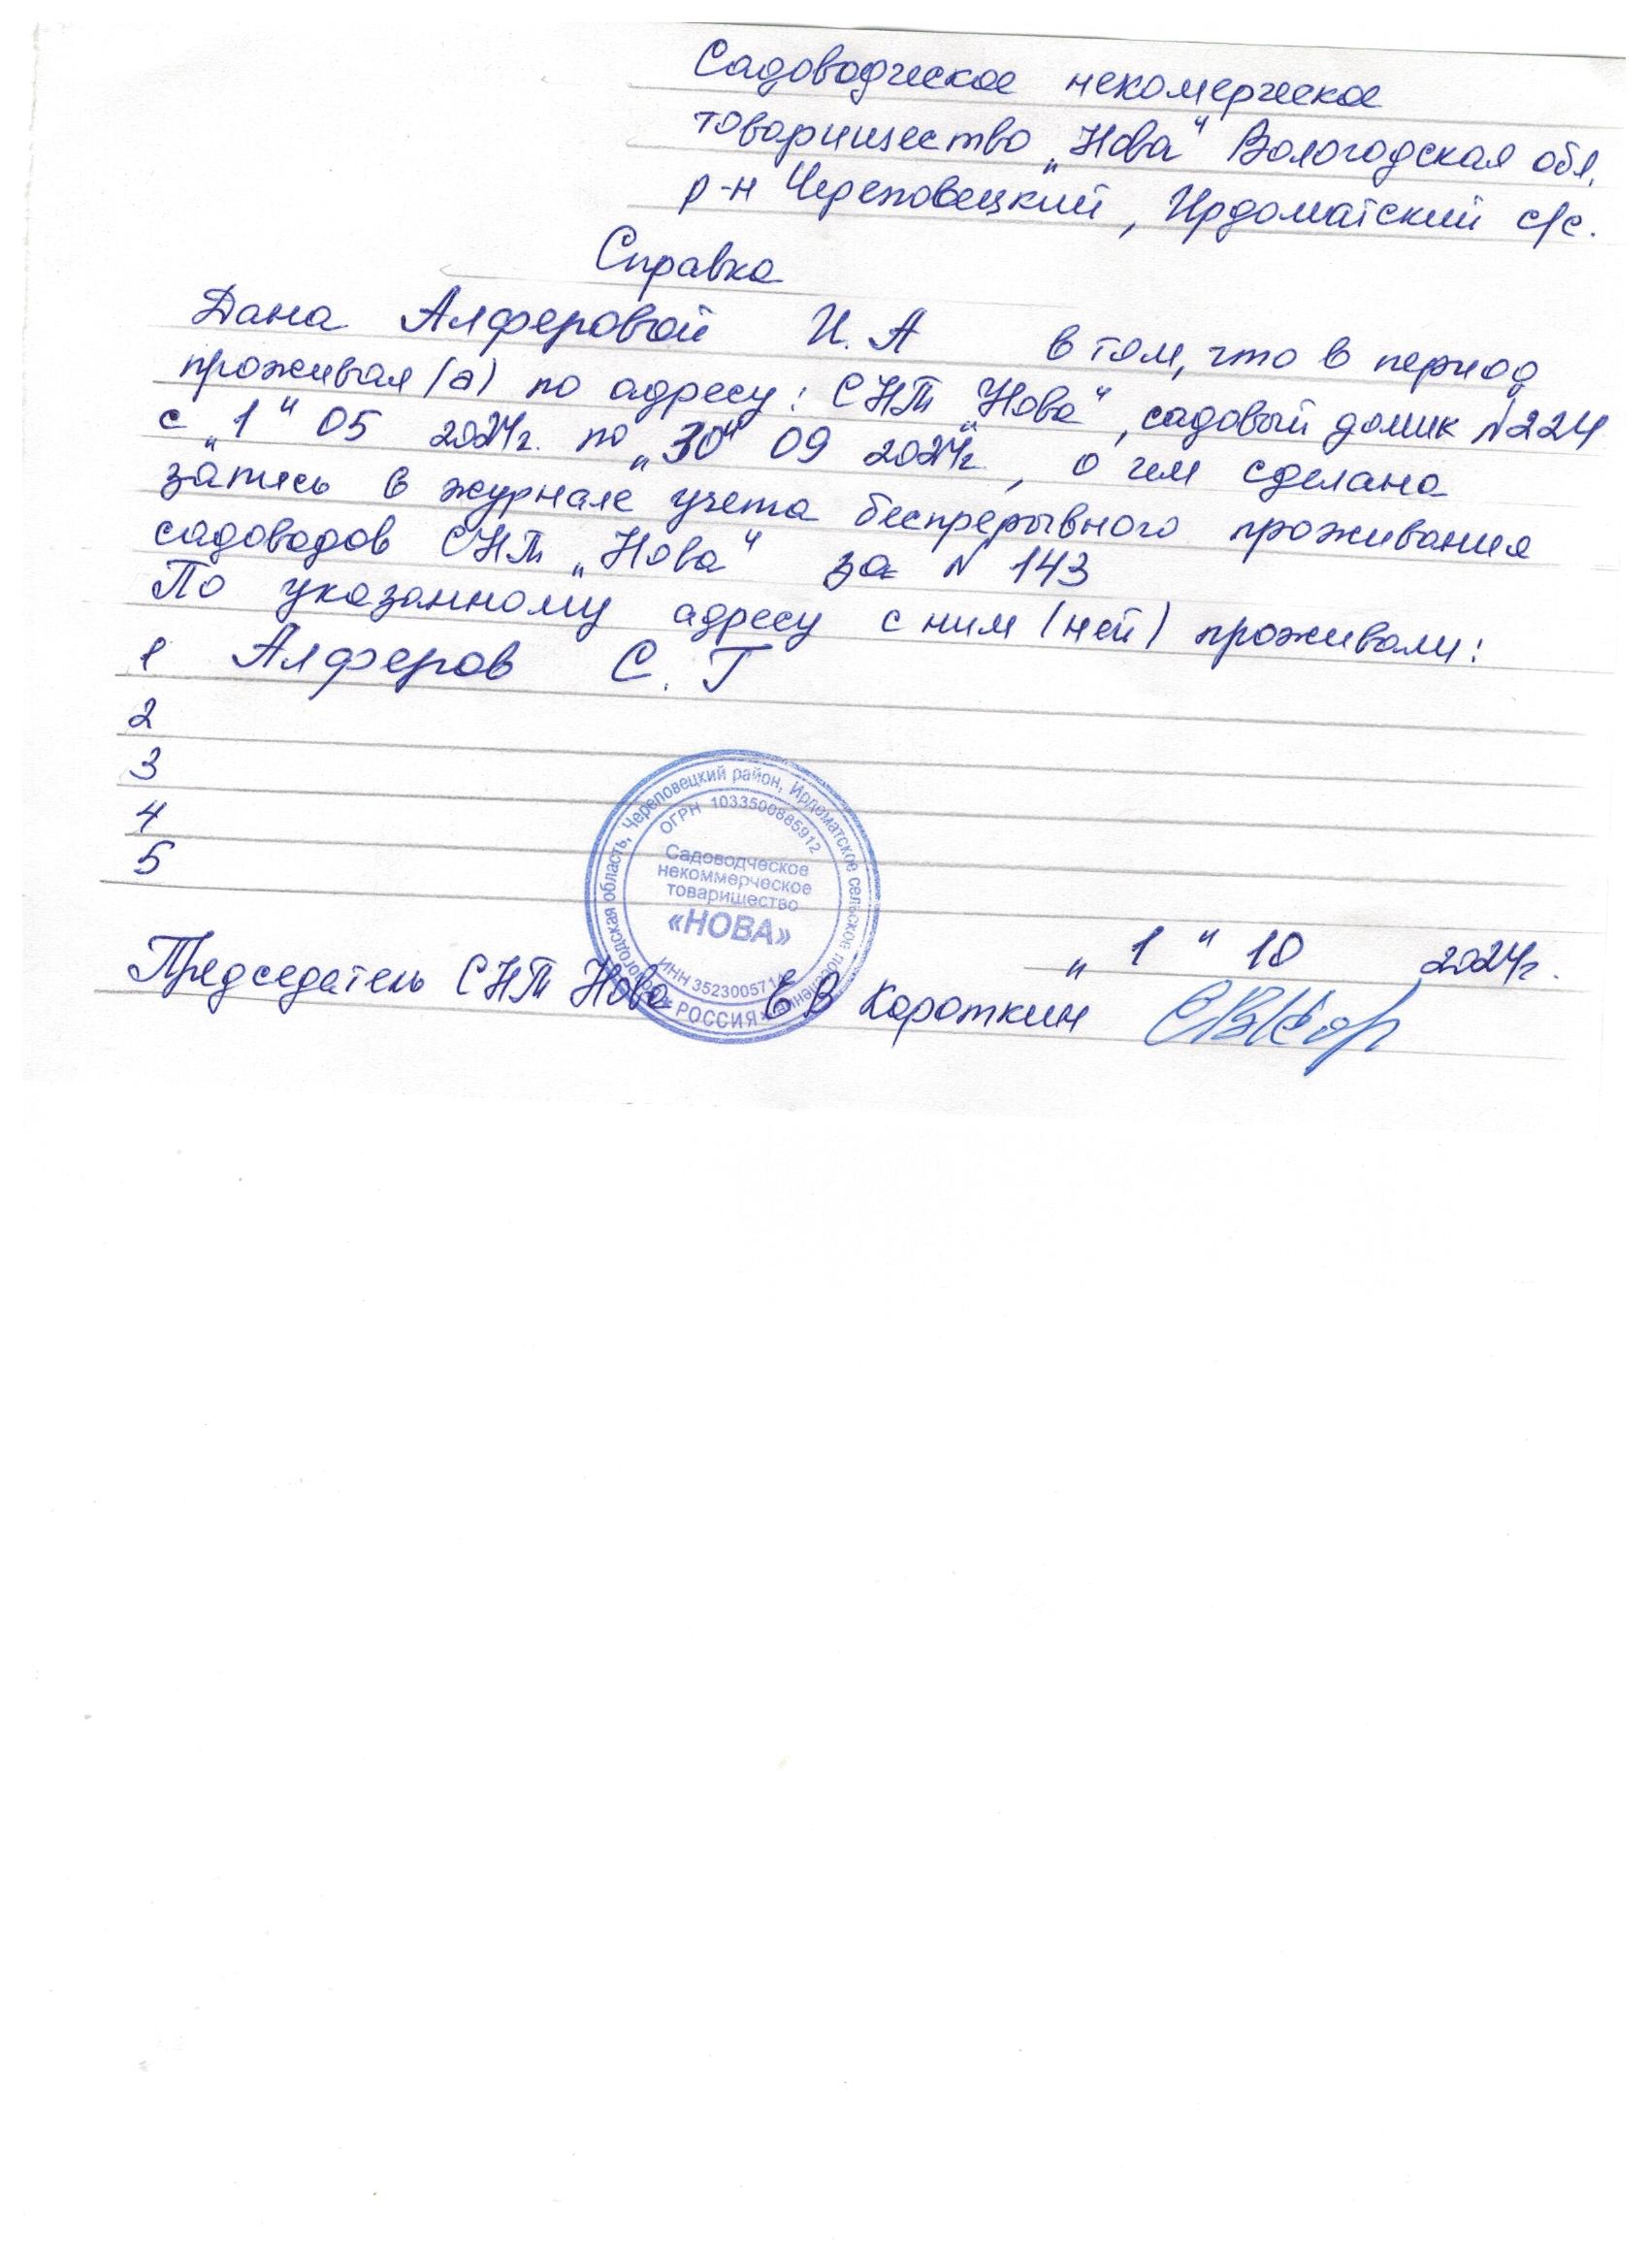 Садоводческое некомерческое
товарищество „Нова“ Вологодская обл,
р-н Череповецкий, Ирдоматский с/с.
Справка
Дана Алферовой И. А в том, что в период
проживал (а) по адресу: СНТ „Нова“, садовый домик №224
с „1“ 05 2024г. по „30“ 09 2024г, о чем сделана
запись в журнале учета беспрерывного проживания
садоводов СНТ „Нова“ за № 143
По указанному адресу с ним (ней) проживали:
1 Алферов С. Г
2
3
4
5
Вологодская область, Череповецкий район, Ирдоматское сельское поселение
ОГРН 1033500885912
Садоводческое
некоммерческое
товарищество
«НОВА»
ИНН
* РОССИЯ *
„1“ 10 2024г.
Председатель СНТ Нова Е В Короткин